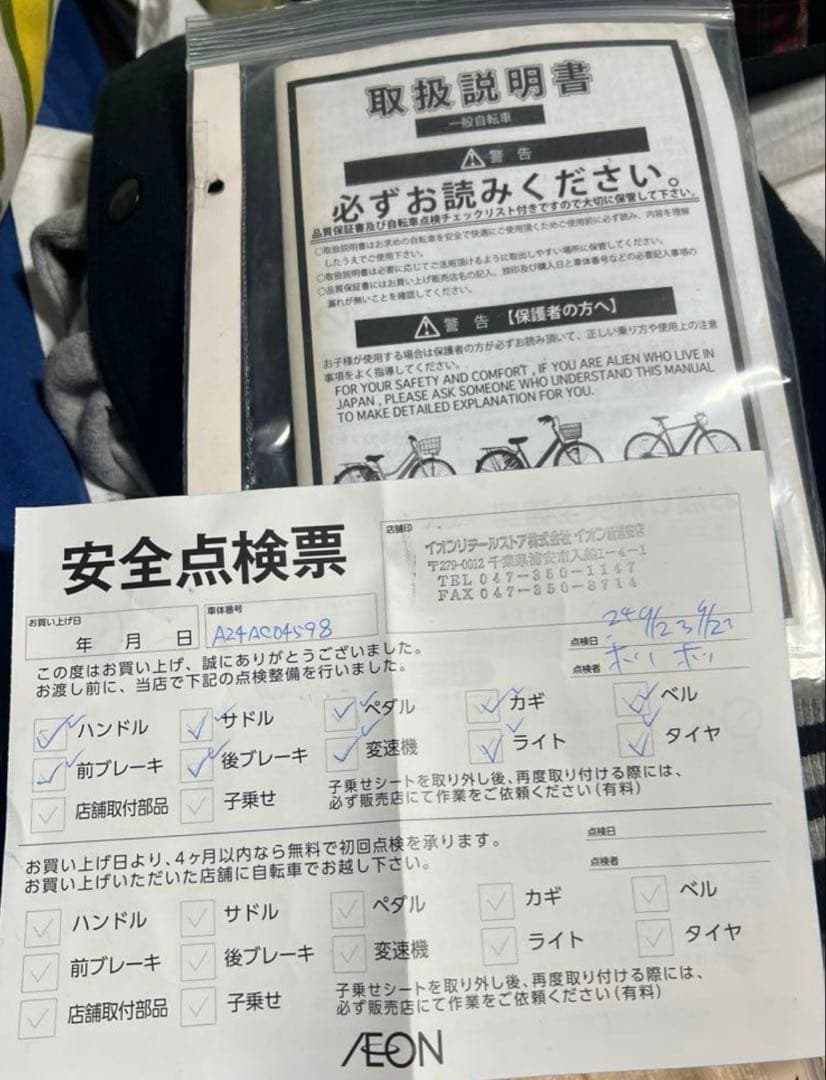 取扱説明書
一般自転車
警告
必ずお読みください。
品質保証書及び自転車点検チェックリスト付きですので大切に保管して下さい。
○取扱説明書はお求めの自転車を安全で快適にご使用頂くためご使用前に必ず読み、内容を理解
したうえでご使用下さい。
○取扱説明書は必要に応じてご活用頂けるように取出しやすい場所に保管してください。
○品質保証書にはお買い上げ販売店名の記入、捺印及び購入日と車体番号などの必要記入事項の
漏れが無いことを確認してください。
警告【保護者の方へ】
お子様が使用する場合は保護者の方が必ずお読み頂いて、正しい乗り方や使用上の注意
事項をよく指導してください。
FOR YOUR SAFETY AND COMFORT , IF YOU ARE ALIEN WHO LIVE IN
JAPAN , PLEASE ASK SOMEONE WHO UNDERSTAND THIS MANUAL
TO MAKE DETAILED EXPLANATION FOR YOU.
安全点検票
店舗印
イオンリテールストア株式会社 イオン新浦安店
〒279-0012 千葉県浦安市入船1-4-1
TEL 047-350-1147
FAX 047-350-8714
お買い上げ日
年 月 日
車体番号
A24AC04598
この度はお買い上げ、誠にありがとうございました。
お渡し前に、当店で下記の点検整備を行いました。
点検日 24 9/23 9/23
点検者
ハンドル サドル ペダル カギ ベル
前ブレーキ 後ブレーキ 変速機 ライト タイヤ
店舗取付部品 子乗せ
子乗せシートを取り外し後、再度取り付ける際には、
必ず販売店にて作業をご依頼ください(有料)
お買い上げ日より、4ヶ月以内なら無料で初回点検を承ります。
お買い上げいただいた店舗に自転車でお越し下さい。
点検日
点検者
ハンドル サドル ペダル カギ ベル
前ブレーキ 後ブレーキ 変速機 ライト タイヤ
店舗取付部品 子乗せ
子乗せシートを取り外し後、再度取り付ける際には、
必ず販売店にて作業をご依頼ください(有料)
ÆON